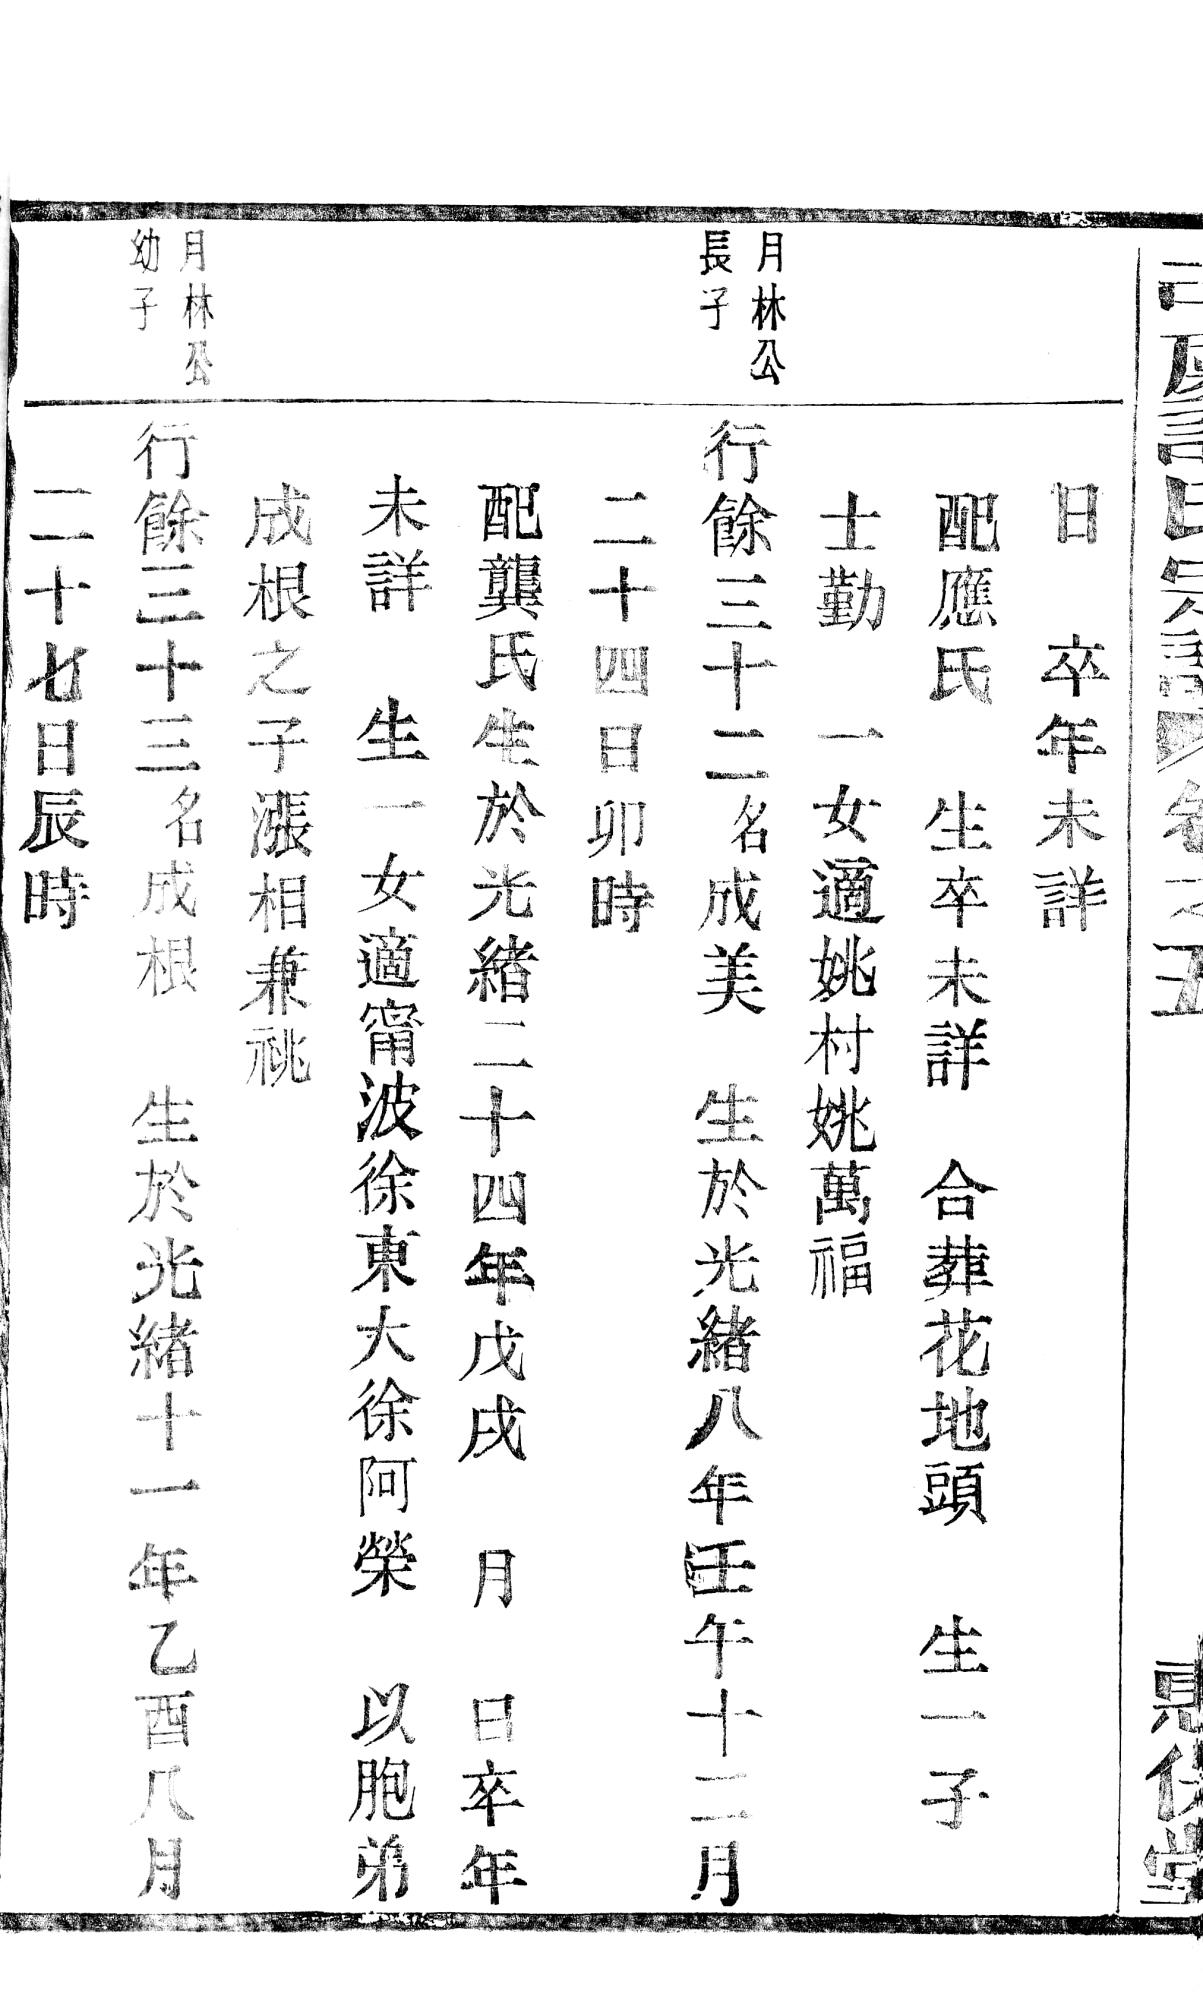 卷之五
日　卒年未詳
配應氏　生卒未詳　合葬花地頭　生一子
士勤　一女適姚村姚萬福
月林公
長子
行餘三十二名成美　生於光緒八年壬午十二月
二十四日卯時
配龔氏生於光緒二十四年戊戌　月　日卒年
未詳　生一女適甯波徐東大徐阿榮　以胞弟
成根之子漲相兼祧
月林公
幼子
行餘三十三名成根　生於光緒十一年乙酉八月
二十七日辰時